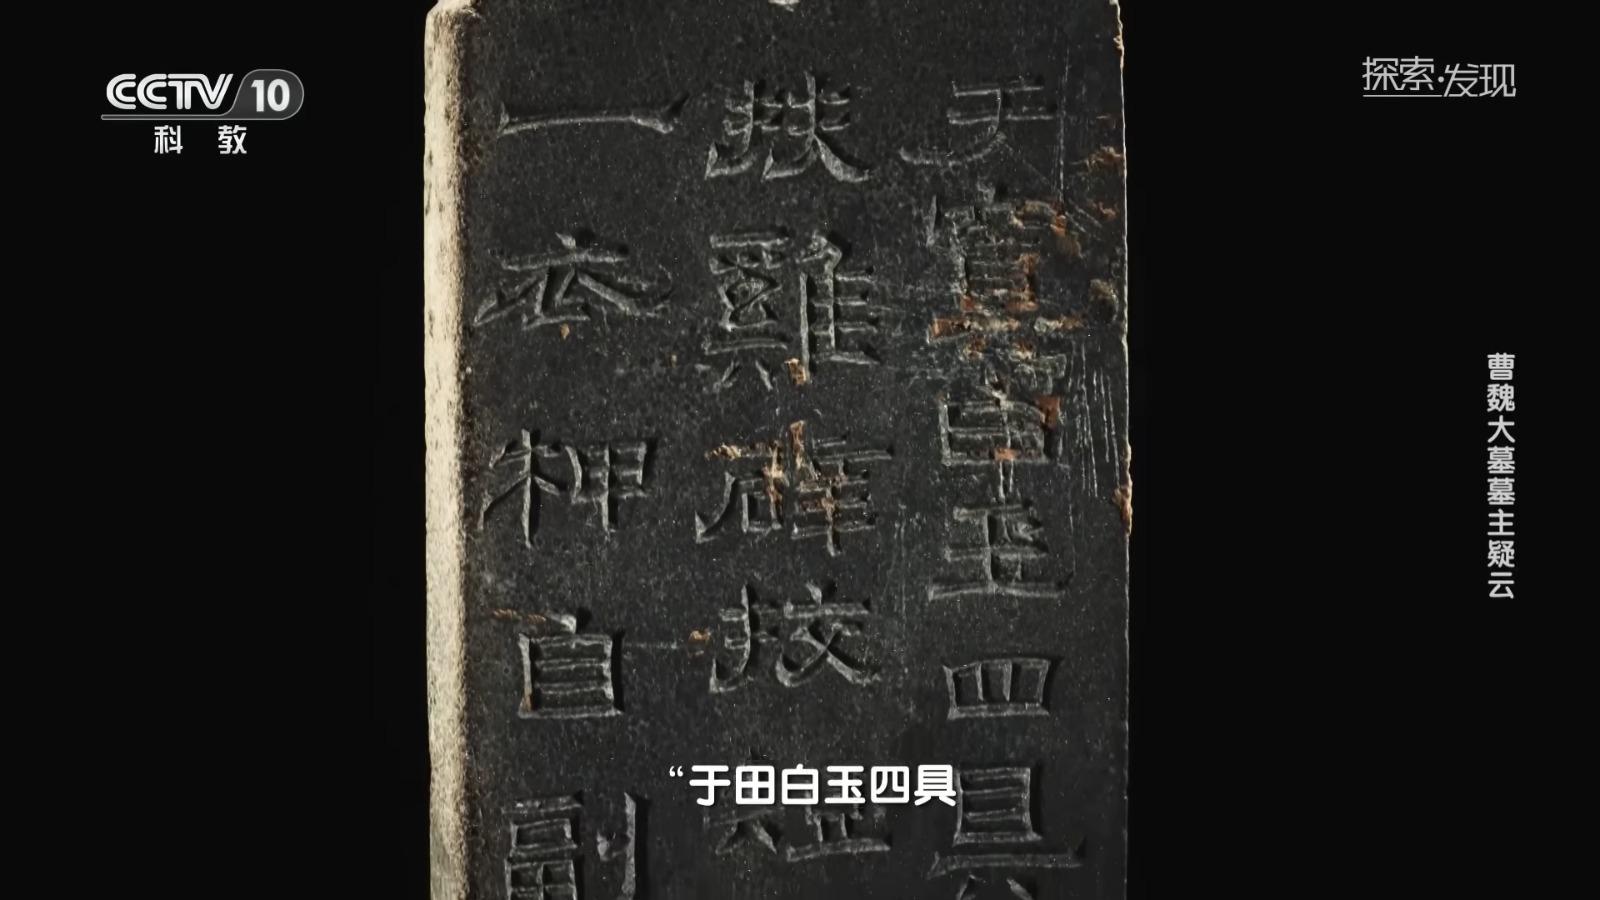 CCTV 10
科教
探索·发现
于寘白玉四具
雞
一衣柙自副
曹魏大墓墓主疑云
“于田白玉四具